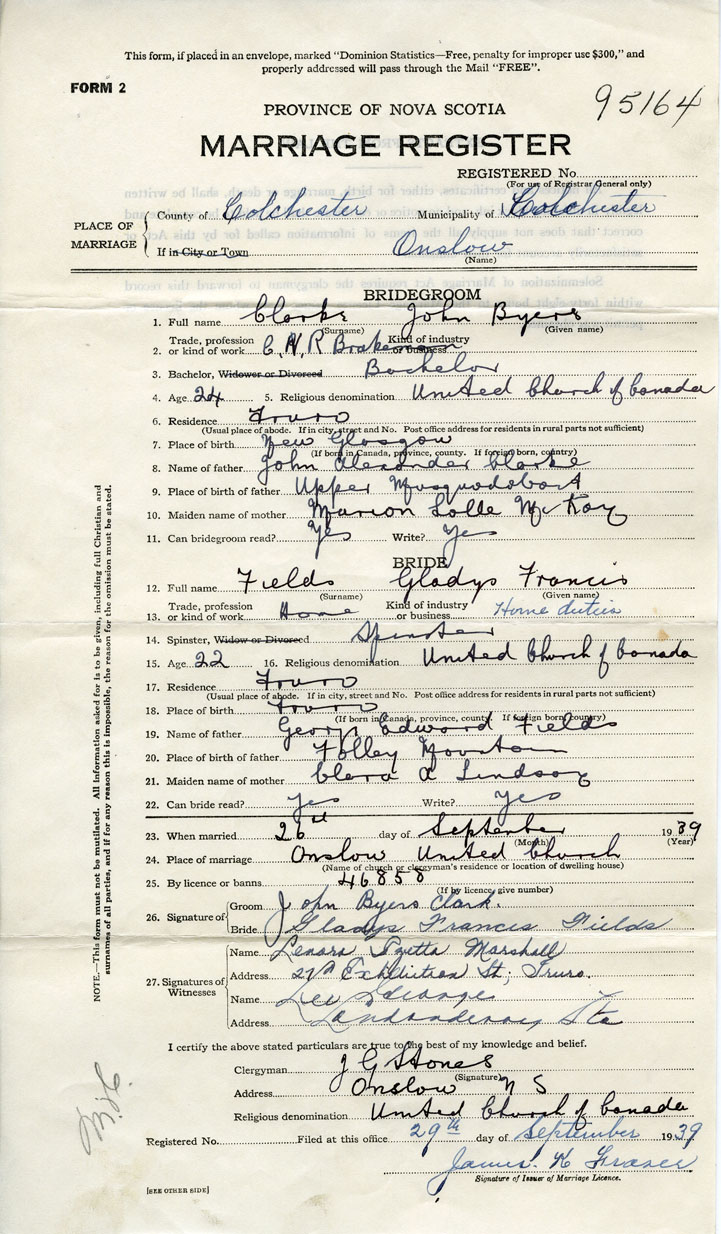 This form, if placed in an envelope, marked "Dominion Statistics—Free, penalty for improper use $300," and
properly addressed will pass through the Mail "FREE".
FORM 2
95164
PROVINCE OF NOVA SCOTIA
MARRIAGE REGISTER
REGISTERED No.
(For use of Registrar General only)
PLACE OF MARRIAGE
County of Colchester Municipality of Colchester
If in City or Town Onslow
(Name)
BRIDEGROOM
1. Full name Clarke John Byers
(Surname) (Given name)
2. Trade, profession or kind of work C.N.R Brakeman Kind of industry or business
3. Bachelor, Widower or Divorced Bachelor
4. Age 24 5. Religious denomination United Church of Canada
6. Residence Truro
(Usual place of abode. If in city, street and No. Post office address for residents in rural parts not sufficient)
7. Place of birth New Glasgow
(If born in Canada, province, county. If foreign born, country)
8. Name of father John Alexander Clarke
9. Place of birth of father Upper Musquodoboit
10. Maiden name of mother Marion McKay
11. Can bridegroom read? Yes Write? Yes
BRIDE
12. Full name Fields Gladys Francis
(Surname) (Given name)
13. Trade, profession or kind of work Home Kind of industry or business Home duties
14. Spinster, Widow or Divorced Spinster
15. Age 22 16. Religious denomination United Church of Canada
17. Residence Truro
(Usual place of abode. If in city, street and No. Post office address for residents in rural parts not sufficient)
18. Place of birth Truro
(If born in Canada, province, county. If foreign born, country)
19. Name of father George Edward Fields
20. Place of birth of father Folley Mountain
21. Maiden name of mother Clara A Lindsay
22. Can bride read? yes Write? yes
23. When married 26 day of September 1939
(Month) (Year)
24. Place of marriage Onslow United Church
(Name of church or clergyman's residence or location of dwelling house)
25. By licence or banns 46858
(If by licence give number)
26. Signature of
Groom John Byers Clark.
Bride Gladys Francis Fields
27. Signatures of Witnesses
Name Lenora Marshall
Address Exhibition St; Truro.
Name
Address Londonderry Sta
I certify the above stated particulars are true to the best of my knowledge and belief.
Clergyman J G Stones
(Signature)
Address Onslow N S
Religious denomination United Church of Canada
Registered No. Filed at this office 29th day of September 1939
James K Fraser
Signature of Issuer of Marriage Licence.
[SEE OTHER SIDE]
NOTE.—This form must not be mutilated. All information asked for is to be given, including full Christian and
surnames of all parties, and if for any reason this is impossible, the reason for the omission must be stated.